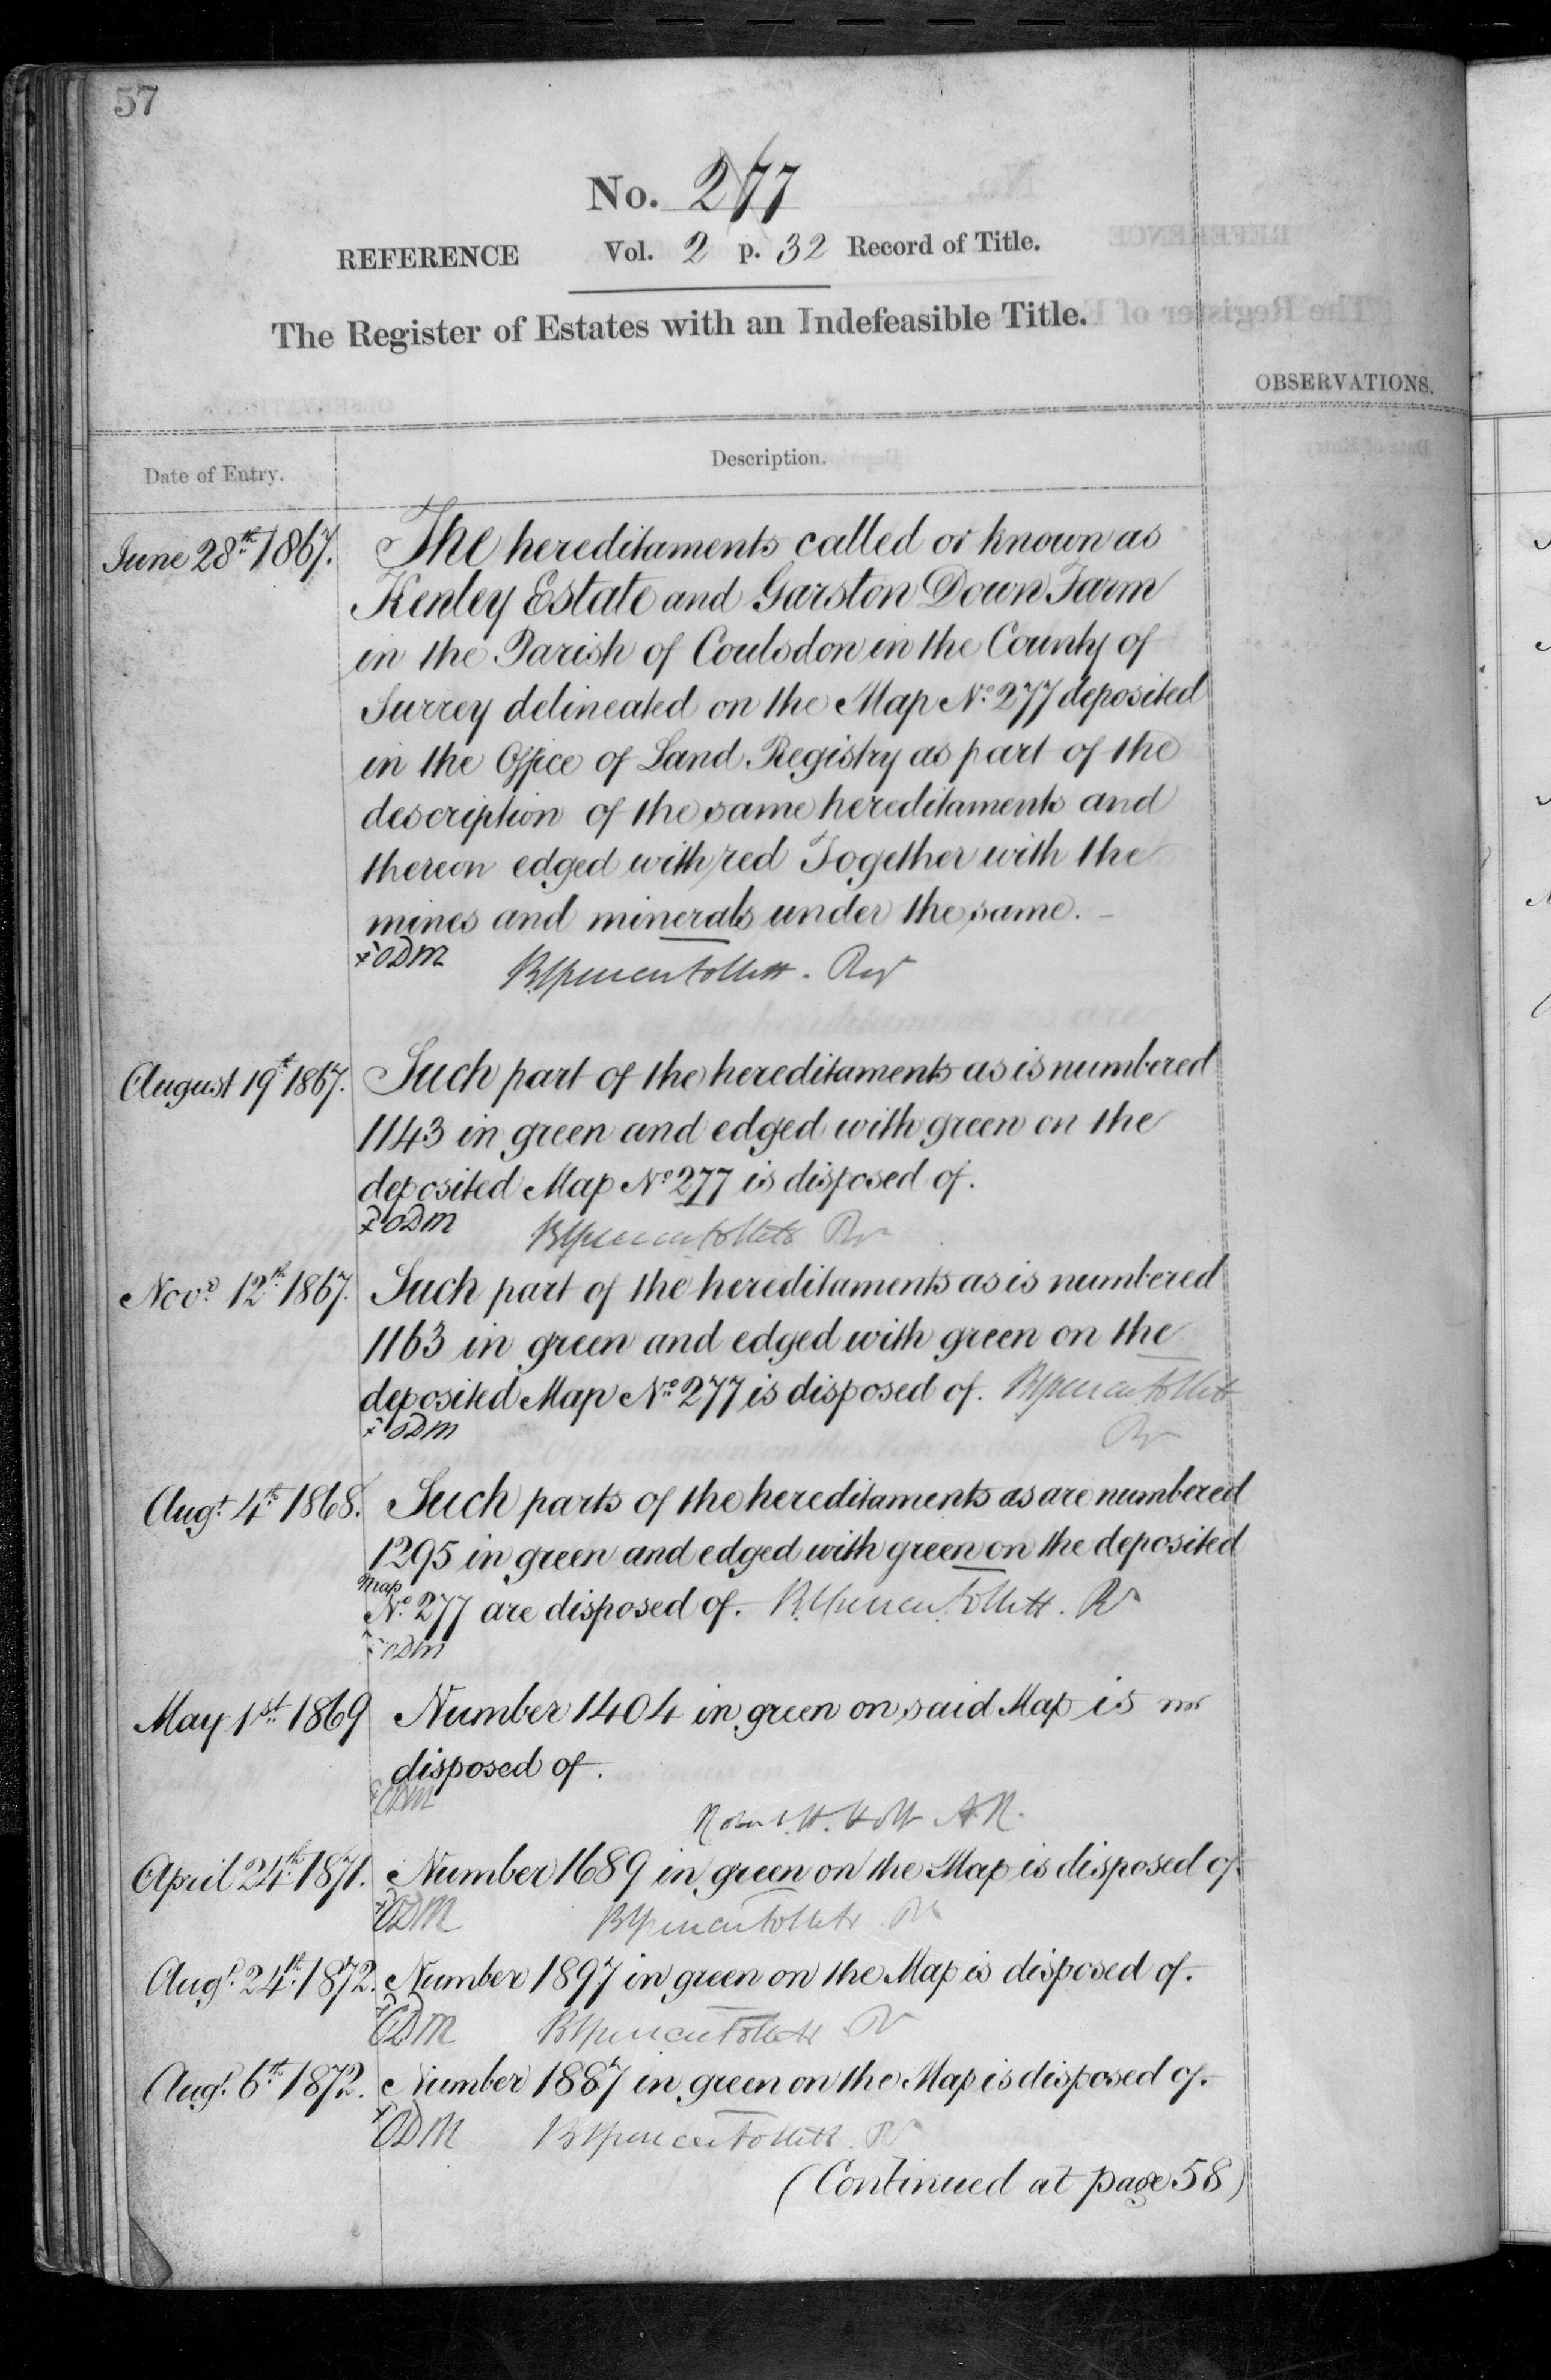 57
No. 277
REFERENCE Vol. 2 p. 32 Record of Title.
The Register of Estates with an Indefeasible Title.
OBSERVATIONS.
Date of Entry. Description.
June 28th 1867. The hereditaments called or known as
Kenley Estate and Garston Down Farm
in the Parish of Coulsdon in the County of
Surrey delineated on the Map No. 277 deposited
in the Office of Land Registry as part of the
description of the same hereditaments and
thereon edged with red Together with the
mines and minerals under the same.
ODM Brent Spencer Follett. Regr
August 19th 1867. Such part of the hereditaments as is numbered
1143 in green and edged with green on the
deposited Map No 277 is disposed of.
ODM
Novr 12th 1867. Such part of the hereditaments as is numbered
1163 in green and edged with green on the
deposited Map No 277 is disposed of.
ODM
Augt 4th 1868. Such parts of the hereditaments as are numbered
1295 in green and edged with green on the deposited
Map
No. 277 are disposed of.
ODM
May 1st 1869 Number 1404 in green on said Map is
disposed of.
ODM
Robert H. Holt A.R.
April 24th 1871. Number 1689 in green on the Map is disposed of.
ODM
Augt 24th 1872. Number 1897 in green on the Map is disposed of.
ODM
Augt 6th 1872. Number 1887 in green on the Map is disposed of.
ODM
(Continued at page 58)